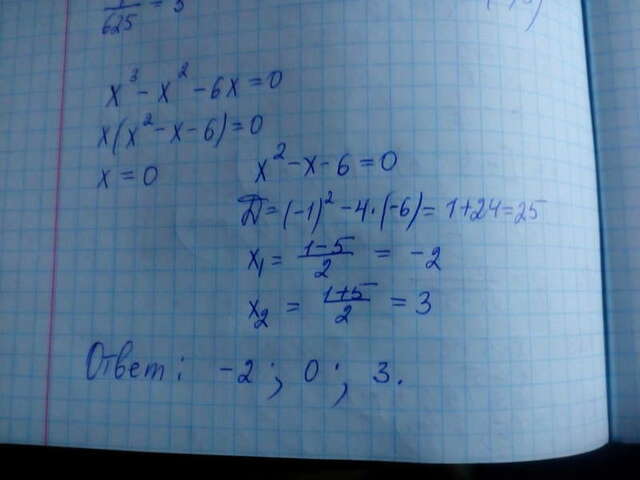 625 = 3
x³ - x² - 6x = 0
x(x² - x - 6) = 0
x = 0 x² - x - 6 = 0
D = (-1)² - 4·(-6) = 1+24 = 25
x₁ = (1-5)/2 = -2
x₂ = (1+5)/2 = 3
Ответ: -2; 0; 3.